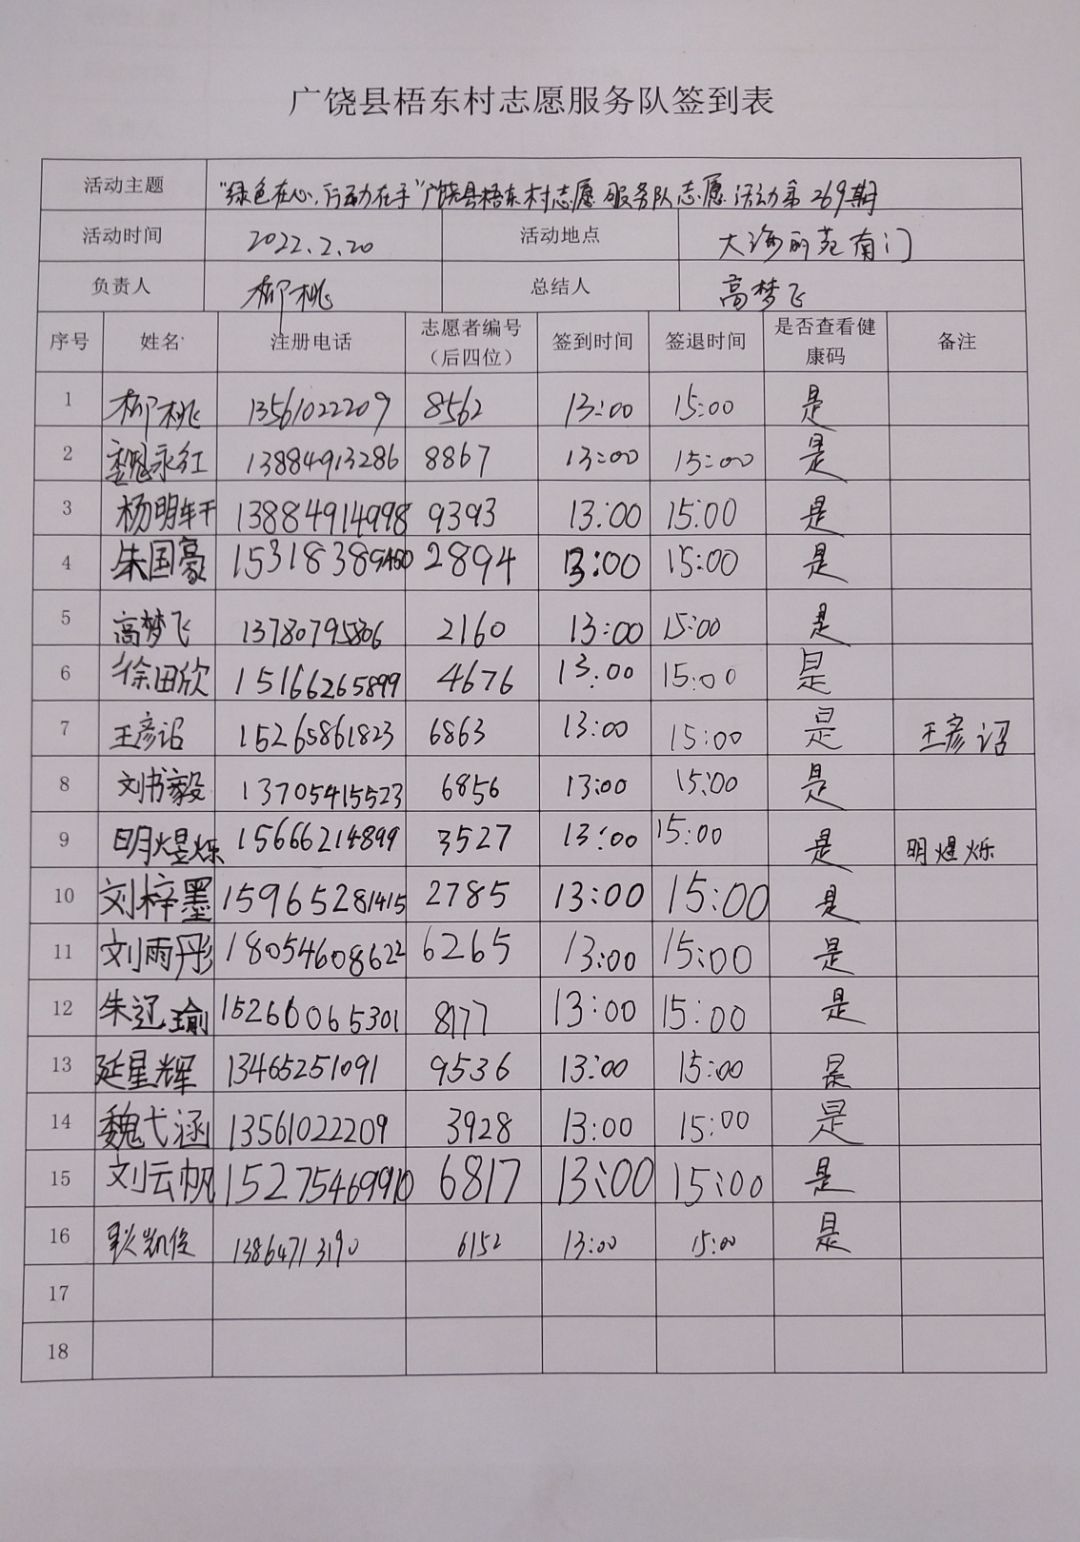 广饶县梧东村志愿服务队签到表
活动主题 “绿色在心，行动在手”广饶县梧东村志愿服务队志愿活动第269期
活动时间 2022.2.20 活动地点 大海丽苑南门
负责人 柳桃 总结人 高梦飞
序号 姓名 注册电话 志愿者编号（后四位） 签到时间 签退时间 是否查看健康码 备注
1 柳桃 13561022209 8562 13:00 15:00 是
2 魏永红 13884913286 8867 13:00 15:00 是
3 杨明轩 13884914998 9393 13:00 15:00 是
4 朱国豪 2894 13:00 15:00 是
5 高梦飞 13780795806 2160 13:00 15:00 是
6 徐田欣 15166265899 4676 13:00 15:00 是
7 王彦诏 15265861823 6863 13:00 15:00 是 王彦诏
8 刘书毅 13705415523 6856 13:00 15:00 是
9 明煜烁 15666214899 3527 13:00 15:00 是 明煜烁
10 刘梓墨 15965281415 2785 13:00 15:00 是
11 刘雨彤 18054608622 6265 13:00 15:00 是
12 朱辽瑜 15266065301 8177 13:00 15:00 是
13 延星辉 13465251091 9536 13:00 15:00 是
14 魏弋涵 13561022209 3928 13:00 15:00 是
15 刘云帆 15275469910 6817 13:00 15:00 是
16 耿凯俊 13864713190 6152 13:00 15:00 是
17
18